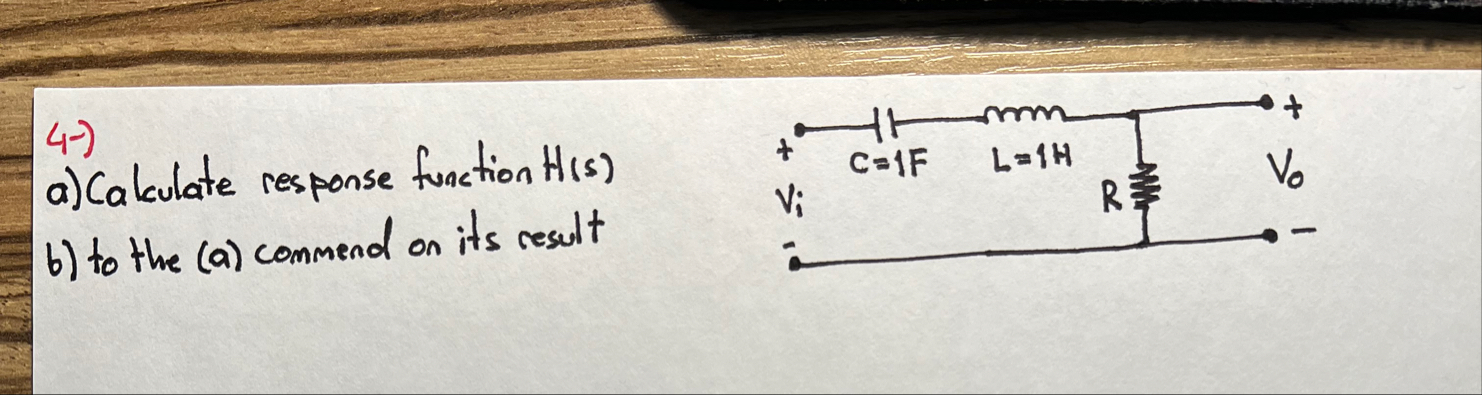 4-)
a) Calculate response function H(s)
b) to the (a) commend on its result
+
Vi
-
C=1F
L=1H
R
+
Vo
-